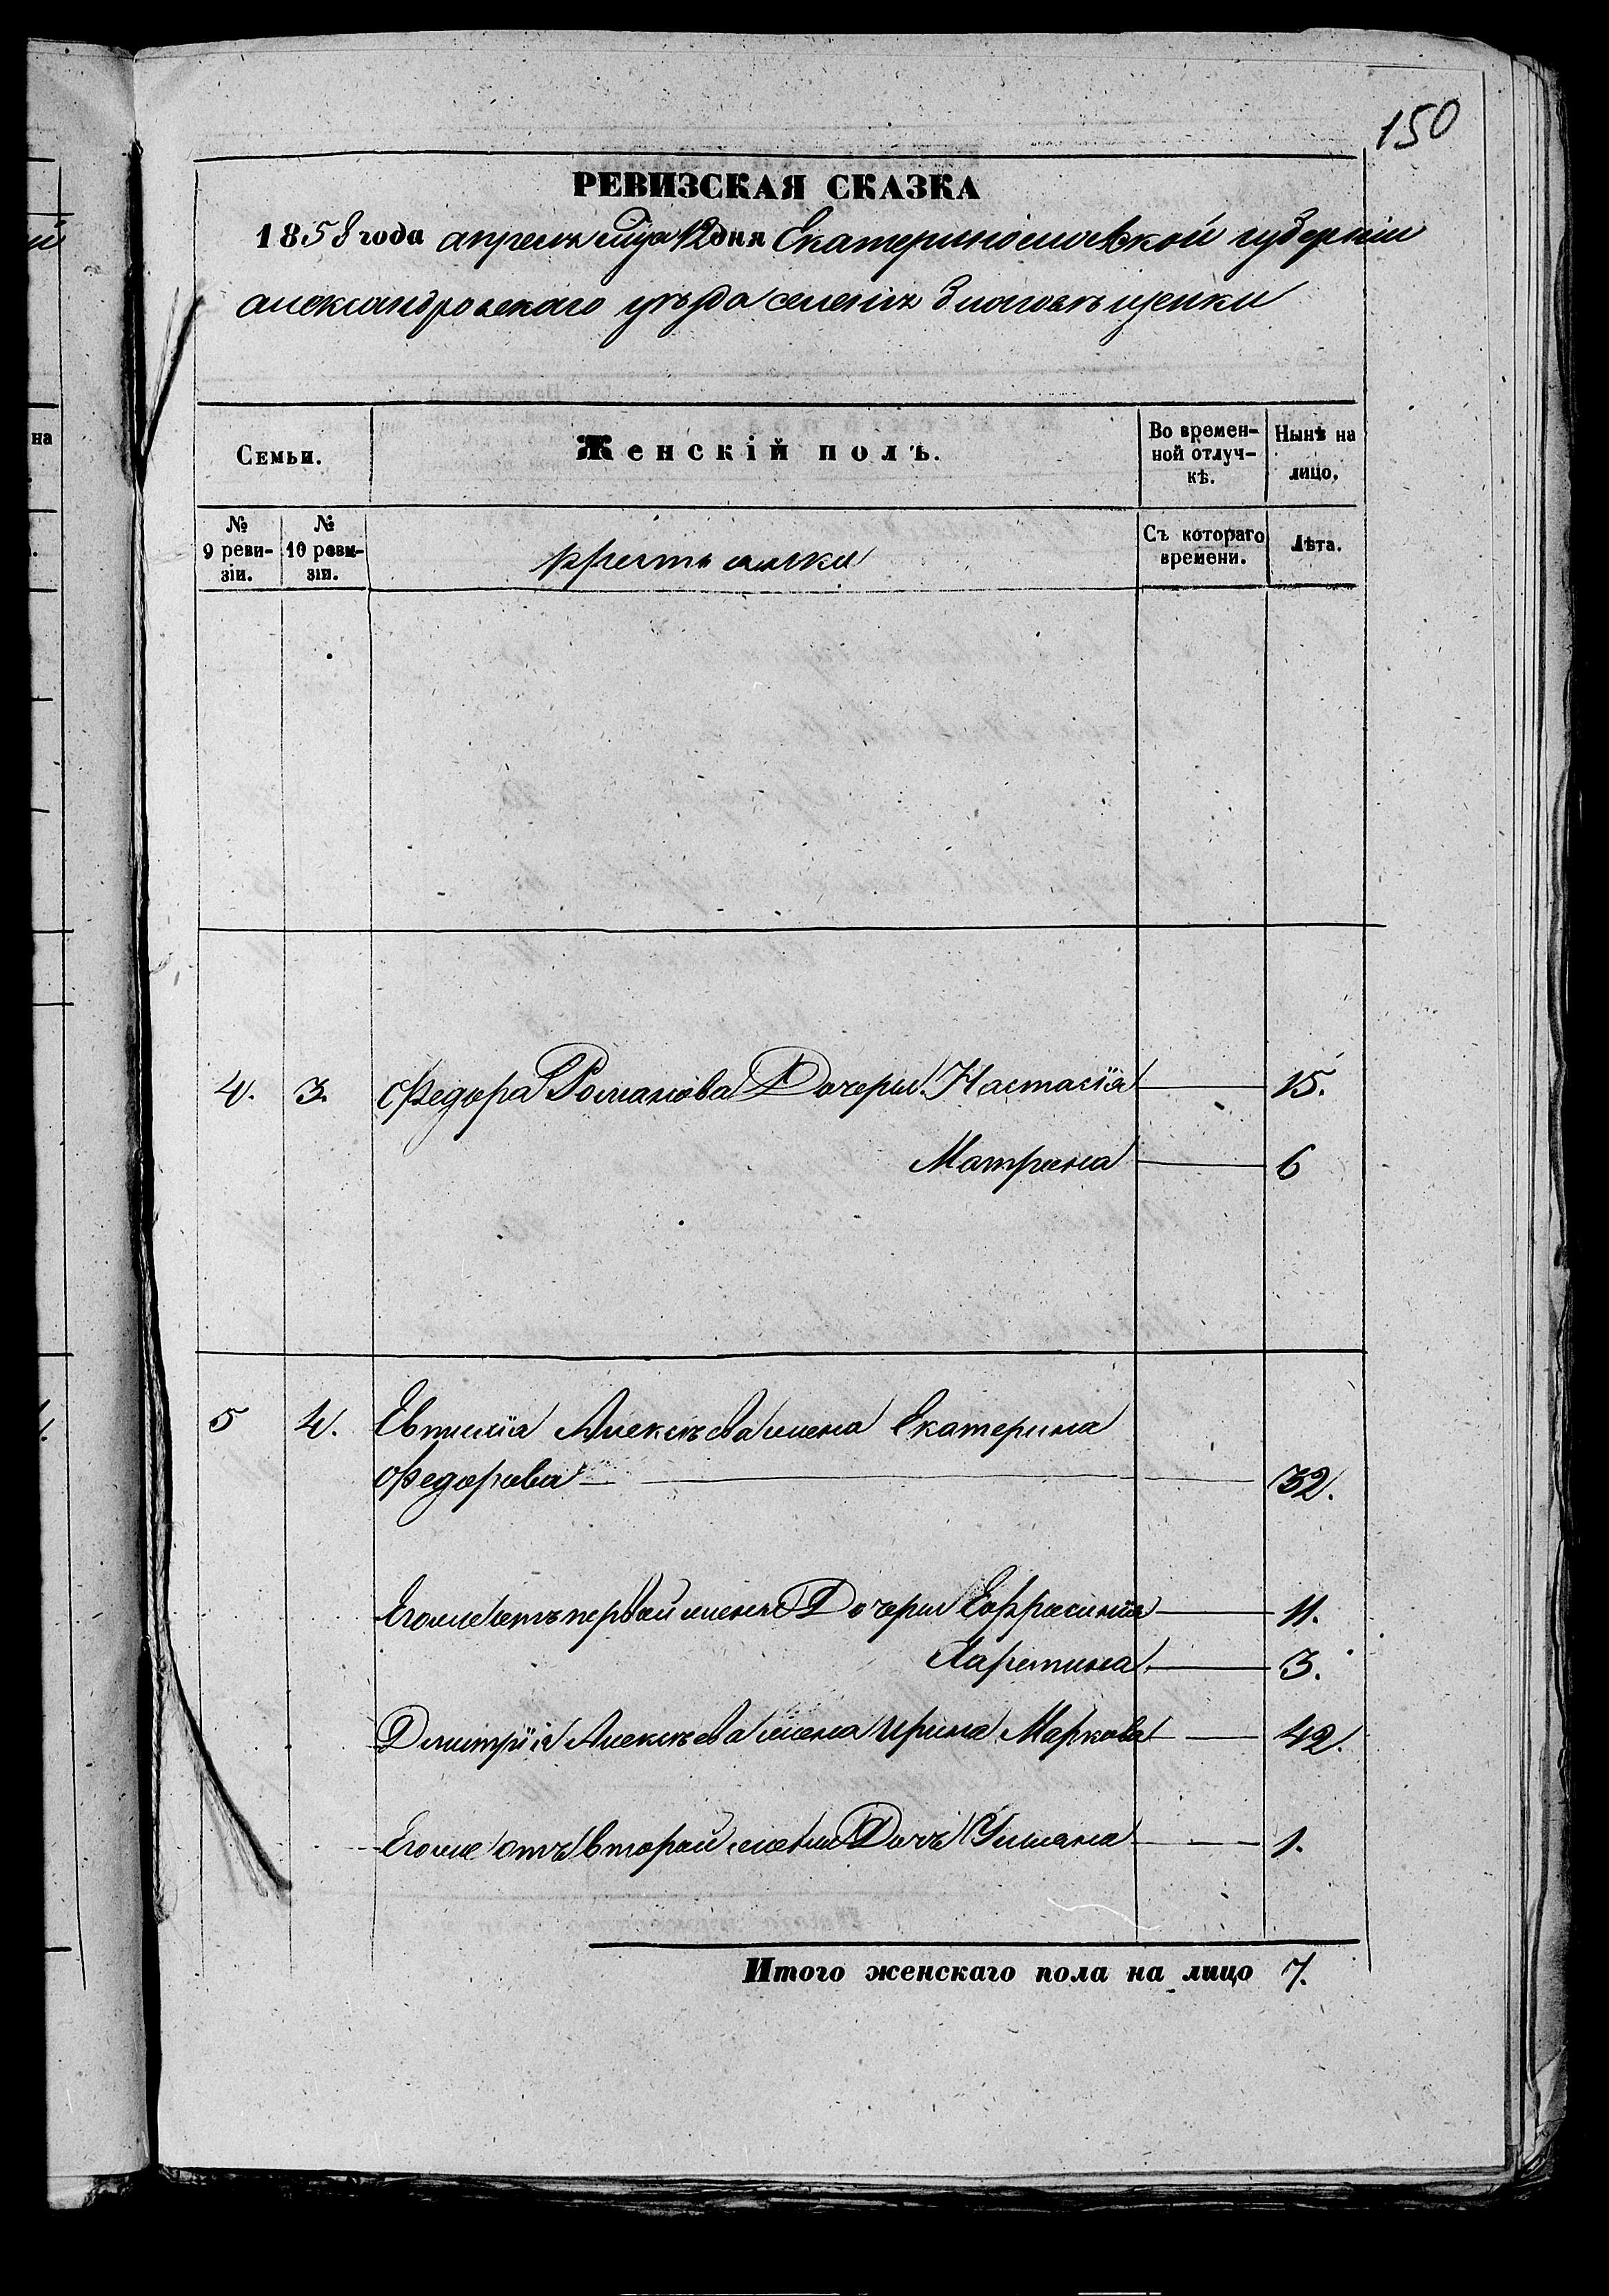 150
РЕВИЗСКАЯ СКАЗКА
1858 года апреля мца 12 дня Екатеринославской губерніи
александровскаго уѣзда селенія Благовѣщенки
Семьи.
Женскій полъ.
Во времен-
ной отлуч-
кѣ.
Нынѣ на
лицо.
№
9 реви-
зіи.
№
10 реви-
зіи.
крестьянки
Съ котораго
времени.
Лѣта.
4. 3. Федора Романова Дочери Настасія 15.
Матрина 6
5 4. Евтихія Алексѣева жена Екатерина
Федорова 32.
Егоже отъ первой жены Дочери Ефросинія 11.
Харитина 3.
Дмитрія Алексѣева жена Ирина Маркова 42.
Егоже отъ второй жены Дочь Улияна 1.
Итого женскаго пола на лицо 7.
на